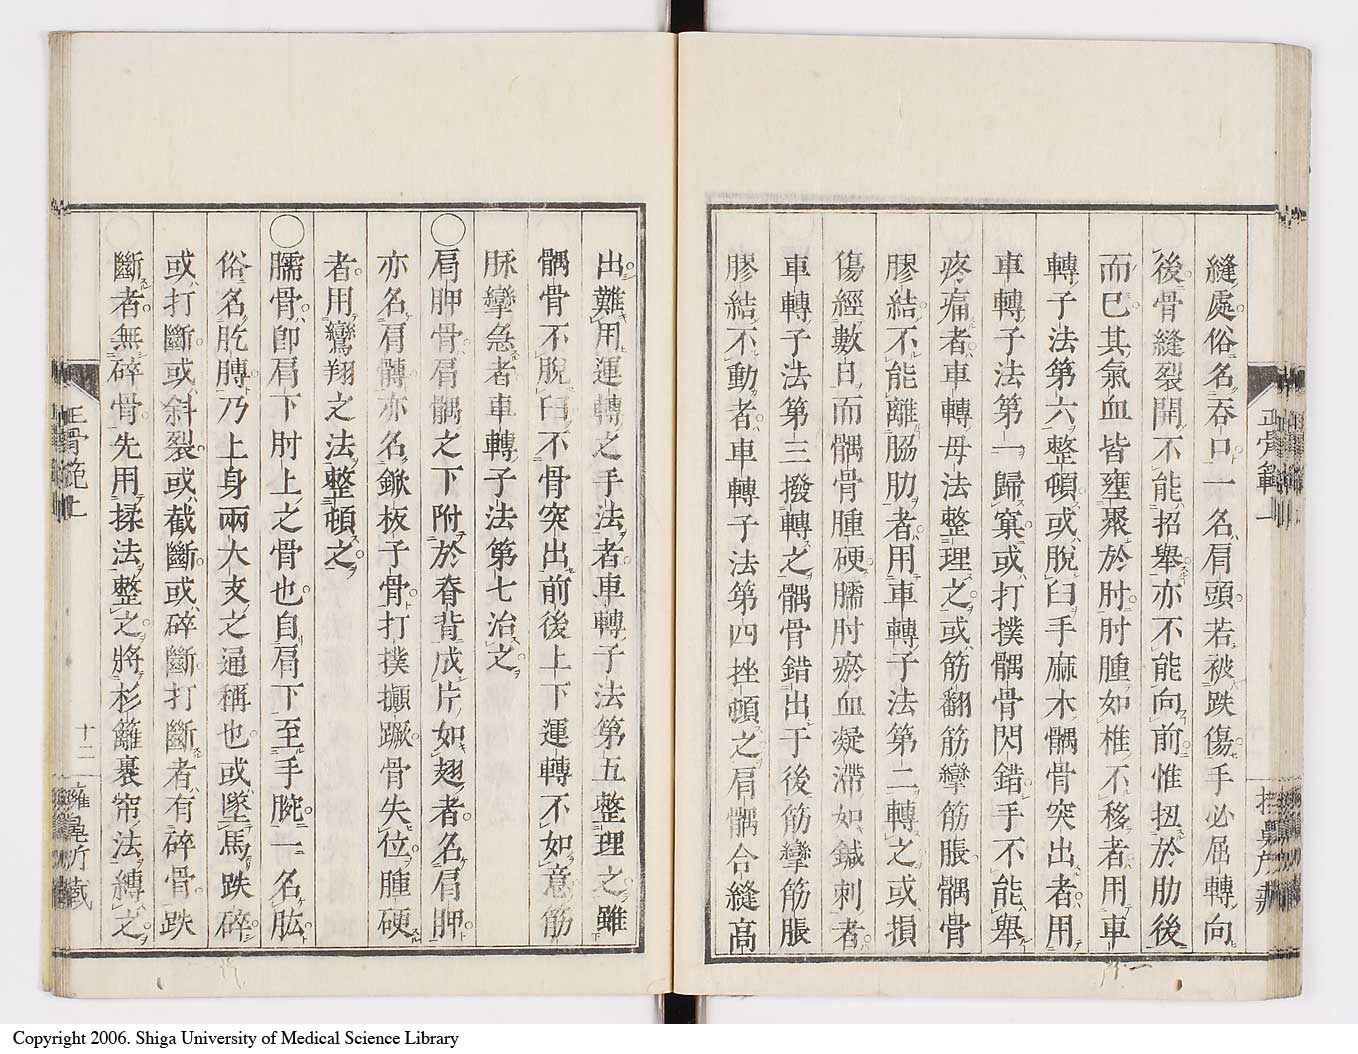 縫處俗名吞口一名肩頭若被跌傷手必屈轉向
後骨縫裂開不能招舉亦不能向前惟扭於肋後
而已其氣血皆壅聚於肘肘腫如椎不移者用車
轉子法第六整頓或脫臼手麻木髃骨突出者用
車轉子法第一歸窠或打撲髃骨閃錯手不能舉
疼痛者車轉母法整理之或筋翻筋攣筋脹髃骨
膠結不能離脇肋者用車轉子法第二轉之或損
傷經數日而髃骨腫硬臑肘瘀血凝滯如鍼刺者
車轉子法第三撥轉之髃骨錯出于後筋攣筋脹
膠結不動者車轉子法第四挫頓之肩髃合縫高
出難用運轉之手法者車轉子法第五整理之雖
髃骨不脫臼不骨突出前後上下運轉不如意筋
脉攣急者車轉子法第七治之
○肩胛骨肩髃之下附於脊背成片如翅者名肩胛
亦名肩髆亦名鍁板子骨打撲攧蹶骨失位腫硬
者用鸞翔之法整頓之
○臑骨卽肩下肘上之骨也自肩下至手腕一名肱
俗名肐膊乃上身兩大支之通稱也或墜馬跌碎
或打斷或斜裂或截斷或碎斷打斷者有碎骨跌
斷者無碎骨先用揉法整之將杉籬裹帘法縛之
正骨範上
十二
Copyright 2006. Shiga University of Medical Science Library